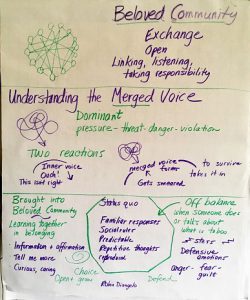 Beloved Community
Exchange
Open
Linking, listening,
taking responsibility
Understanding the Merged Voice
Dominant
pressure-threat-danger-violation
Two reactions
Inner voice
Ouch!
This isnt right
merged voice
forms
Gets smeared
to survive
takes it in
Brought into
Beloved Community
Learning together
in belonging
Information + affirmation
Tell me more
Curious, caring
Choice
Open + grow
Status quo
Familiar responses
Social rules
Predictable
Repetitive thoughts
Defend
Robin Diangelo
Off balance
when someone does
or talks about
what is taboo
stress
Defensive-
emotions
anger-fear-
guilt